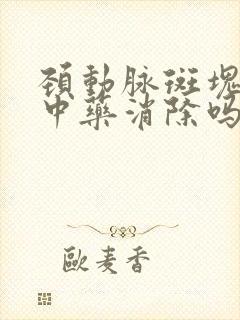 頚動脉斑塊
中藥消除吗
歐麦香